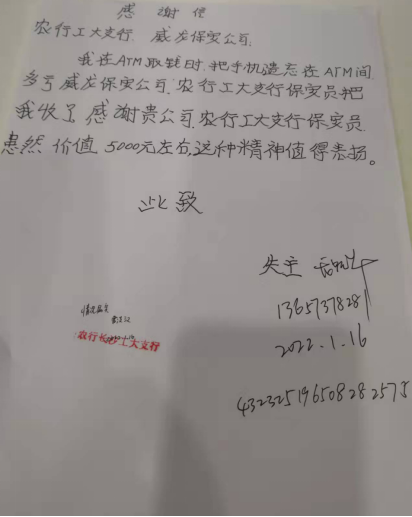 感谢信
农行工大支行 威龙保安公司
我在ATM取钱时,把手机遗忘在ATM间
多亏威龙保安公司.农行工大支行保安员把
我收了 感谢贵公司.农行工大支行保安员
惠然 价值 5000元左右,这种精神值得表扬。
此致
失主
13657378281
2022.1.16
情况属实
农行长沙工大支行
432325196508282575